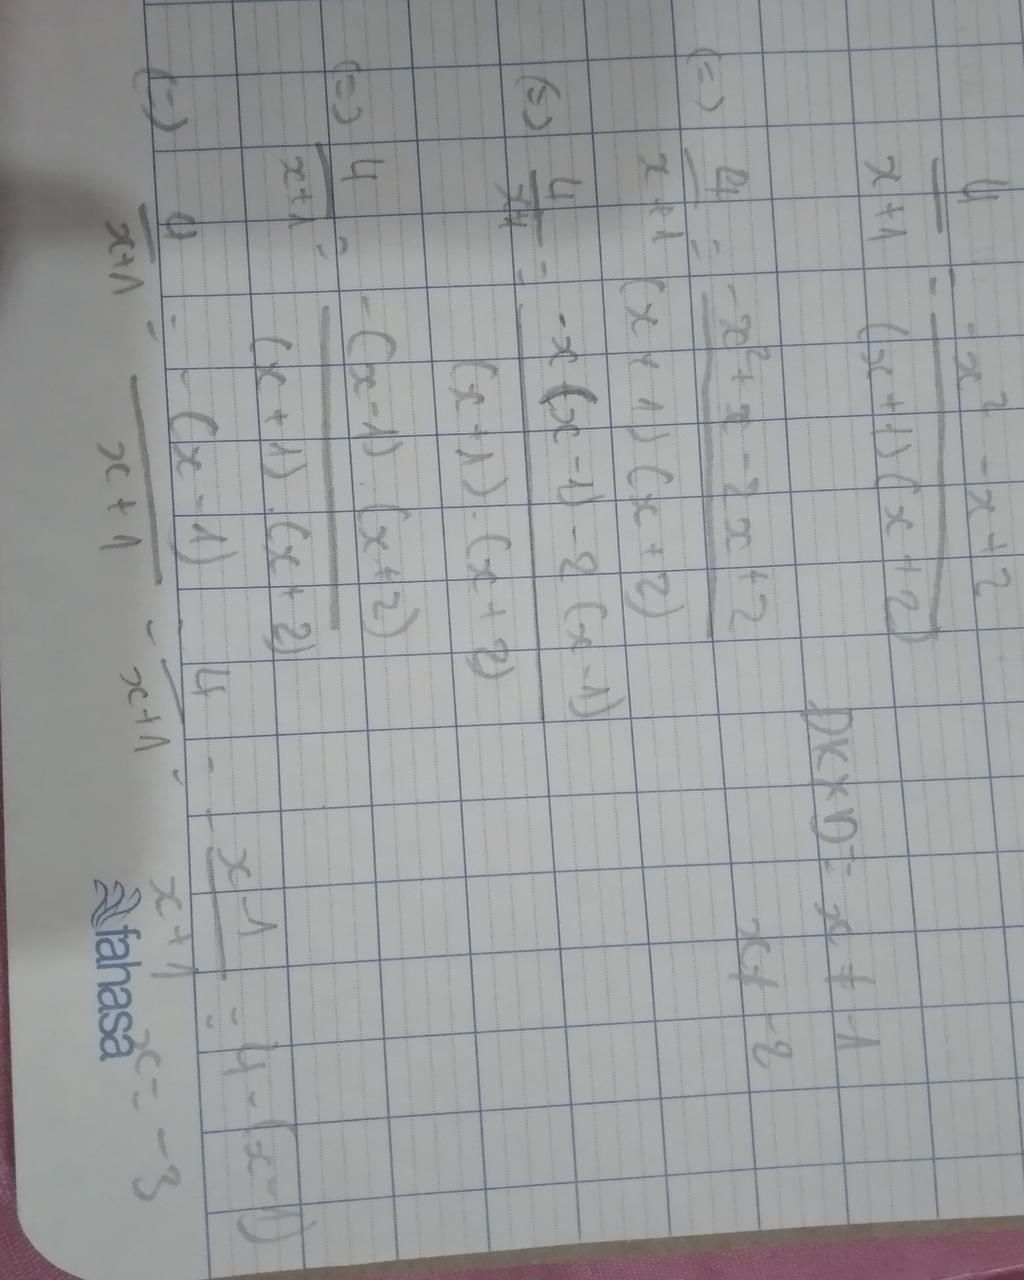 4/(x+1) = (-x² - x + 2)/((x+1)(x+2))
ĐKXĐ: x ≠ -1
x ≠ -2
(=) 4/(x+1) = (-x² + x - 2x + 2)/((x+1)(x+2))
(=) 4/(x+1) = (-x(x-1) - 2(x-1))/((x+1).(x+2))
(=) 4/(x+1) = (-(x-1).(x+2))/((x+1).(x+2))
(=) 4/(x+1) = -(x-1)/(x+1) = 4/(x+1) = -(x-1)/(x+1) = 4 = -(x-1)
x = -3
fahasa